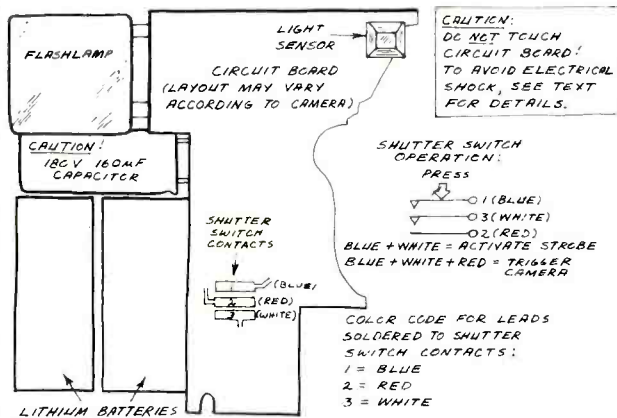 FLASHLAMP
LIGHT
SENSOR
CIRCUIT BOARD
(LAYOUT MAY VARY
ACCORDING TO CAMERA)
CAUTION:
DO NOT TOUCH
CIRCUIT BOARD!
TO AVOID ELECTRICAL
SHOCK, SEE TEXT
FOR DETAILS.
CAUTION!
180V 160MF
CAPACITOR
SHUTTER SWITCH
OPERATION:
PRESS
1 (BLUE)
3 (WHITE)
2 (RED)
BLUE + WHITE = ACTIVATE STROBE
BLUE + WHITE + RED = TRIGGER
CAMERA
SHUTTER
SWITCH
CONTACTS
1 (BLUE)
2 (RED)
3 (WHITE)
COLOR CODE FOR LEADS
SOLDERED TO SHUTTER
SWITCH CONTACTS:
1 = BLUE
2 = RED
3 = WHITE
LITHIUM BATTERIES